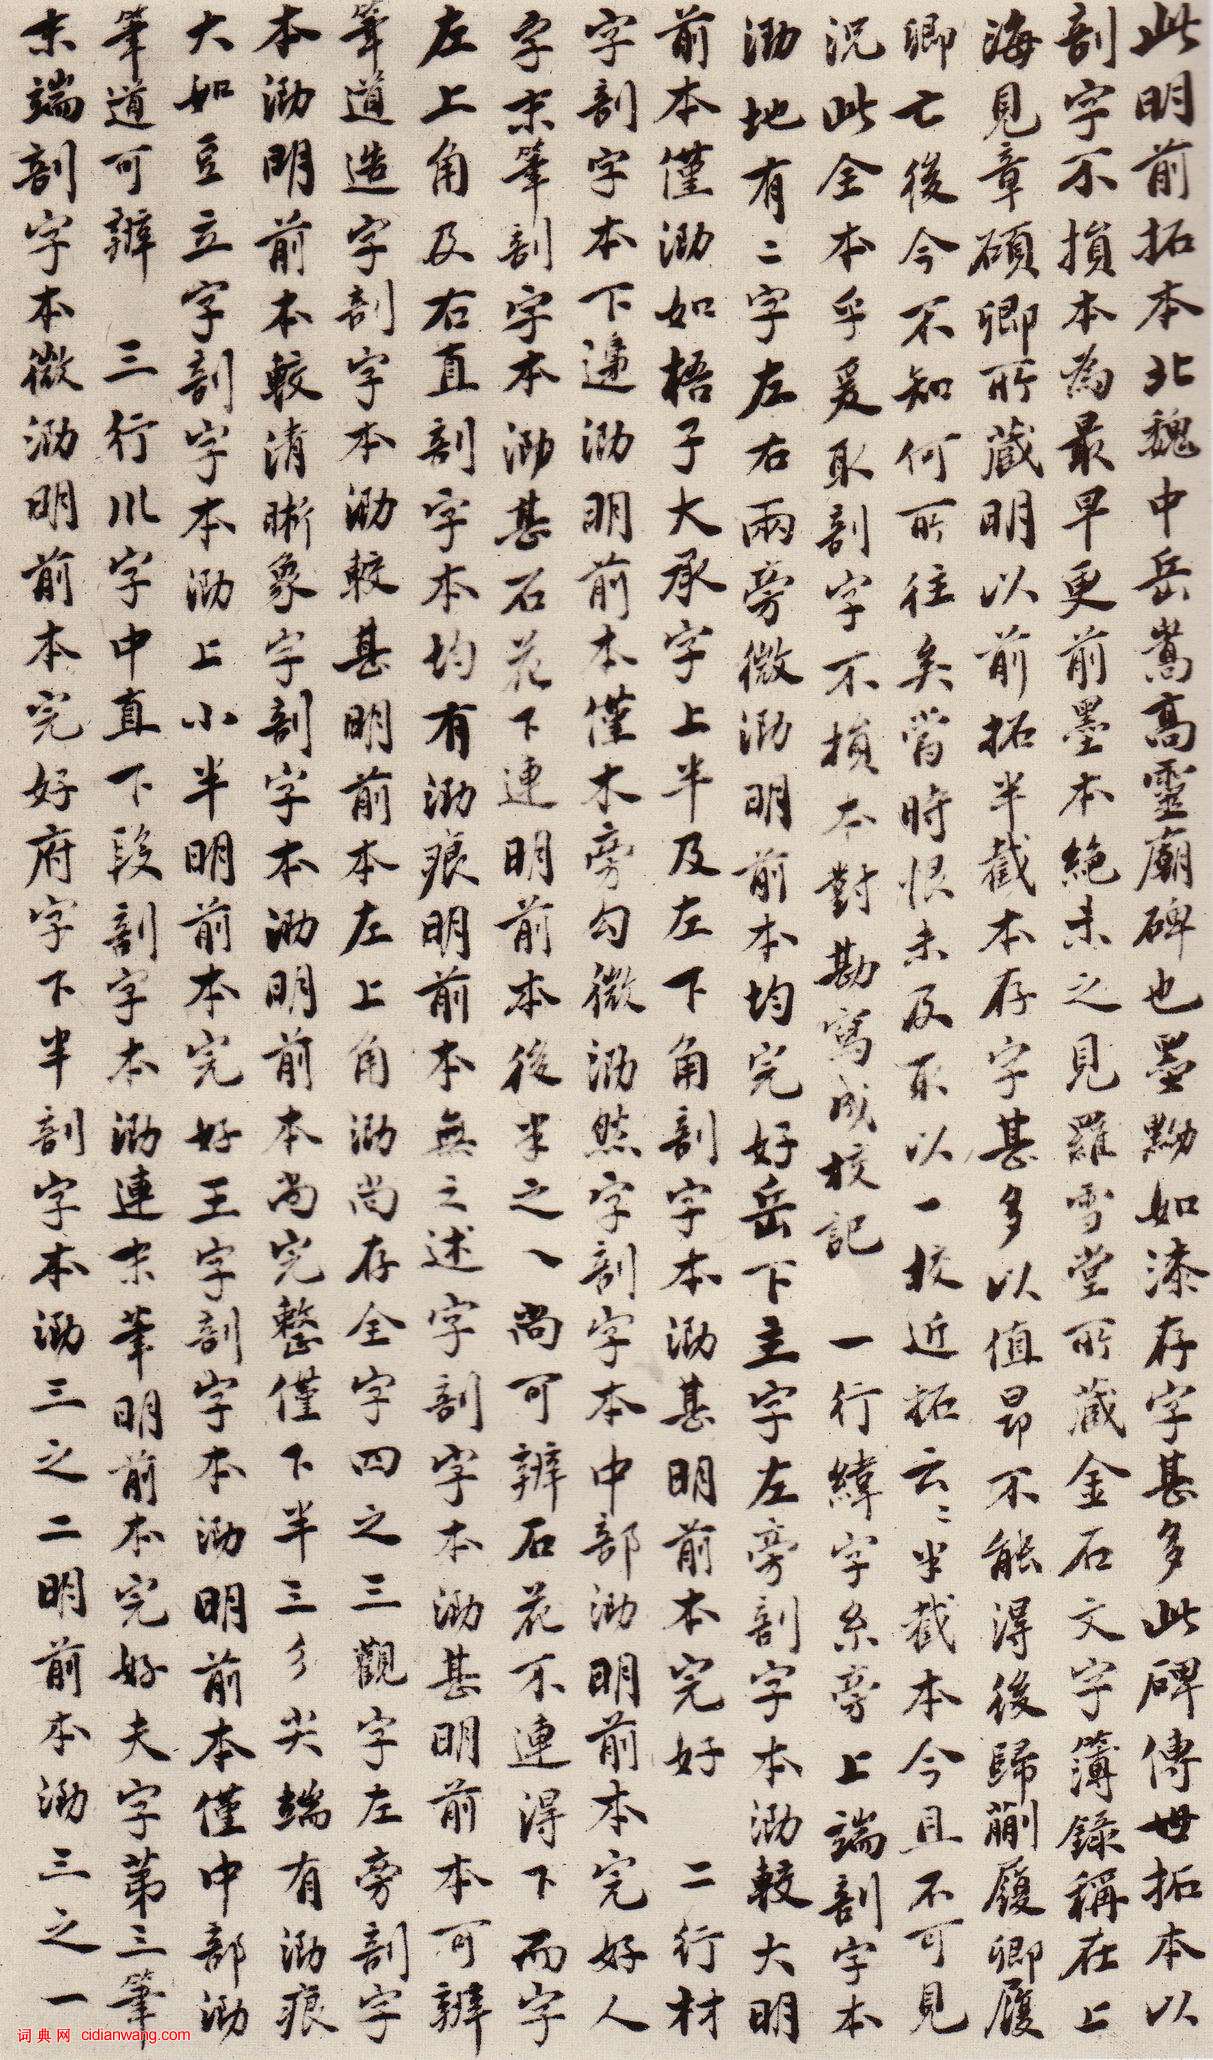 此明前拓本北魏中岳嵩高靈廟碑也墨黝如漆存字甚多此碑傳世拓本以
剖字不損本為最早更前墨本絶未之見羅雪堂所藏金石文字簿錄稱在上
海見章碩卿所藏明以前拓半截本存字甚多以值昂不能得後歸蒯履卿履
卿亡後今不知何所往矣當時恨未及取以一校近拓云〻半截本今且不可見
況此全本乎爰取剖字不損本對勘寫成校記 一行緯字糸旁上端剖字本
泐地有二字左右兩旁微泐明前本均完好岳下主字左旁剖字本泐較大明
前本僅泐如梧子大承字上半及左下角剖字本泐甚明前本完好 二行材
字剖字本下邊泐明前本僅木旁勾微泐然字剖字本中部泐明前本完好人
字末筆剖字本泐甚石花下連明前本後半之乀尚可辨石花不連得下而字
左上角及右直剖字本均有泐痕明前本無之述字剖字本泐甚明前本可辨
筆道造字剖字本泐較甚明前本左上角泐尚存全字四之三觀字左旁剖字
本泐明前本較清晰象字剖字本泐明前本尚完整僅下半三彡尖端有泐痕
大如豆立字剖字本泐上小半明前本完好王字剖字本泐明前本僅中部泐
筆道可辨 三行川字中直下段剖字本泐連末筆明前本完好夫字第三筆
末端剖字本微泐明前本完好府字下半剖字本泐三之二明前本泐三之一
词典网 cidianwang.com